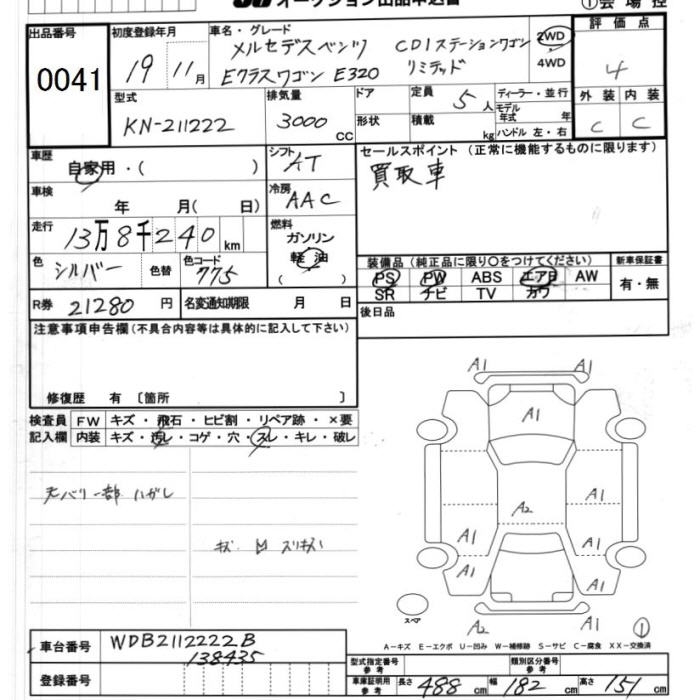 オークション出品申込書
①会場控
出品番号
0041
初度登録年月
19 11月
車名・グレード
メルセデスベンツ CDIステーションワゴン
Eクラスワゴン E320 リミテッド
2WD
4WD
評価点
4
型式
KN-211222
排気量
3000 CC
ドア
形状
定員 5人
積載 kg
ディーラー・並行
モデル年式 年
ハンドル 左・右
外装 内装
C C
車歴
自家用・( )
シフト
AT
セールスポイント (正常に機能するものに限ります)
買取車
車検
年 月( 日)
冷房
AAC
走行
13万8千240km
燃料
ガソリン
軽油
( )
色
シルバー 色替
色コード
775
装備品(純正品に限り○をつけてください) 新車保証書
PS PW ABS エアB AW 有・無
SR ナビ TV カワ
R券 21280円 名変通知期限 月 日
後日品
注意事項申告欄(不具合内容等は具体的に記入して下さい)
修復歴 有 〔箇所 〕
検査員 FW キズ・飛石・ヒビ割・リペア跡・×要
記入欄 内装 キズ・汚レ・コゲ・穴・スレ・キレ・破レ
天バリ一部ハガレ
キズ 凹 スリキズ
A1 A1
A1
A1 A1
A2
A1 A1
A1 A1
A2 A1
スペア
①
A-キズ E-エクボ U-凹み W-補修跡 S-サビ C-腐食 XX-交換済
車台番号 WDB2112222B
138435
登録番号
型式指定番号 参考 類別区分番号 参考
車庫証明用 参考 長さ 488cm 幅 182cm 高さ 151cm